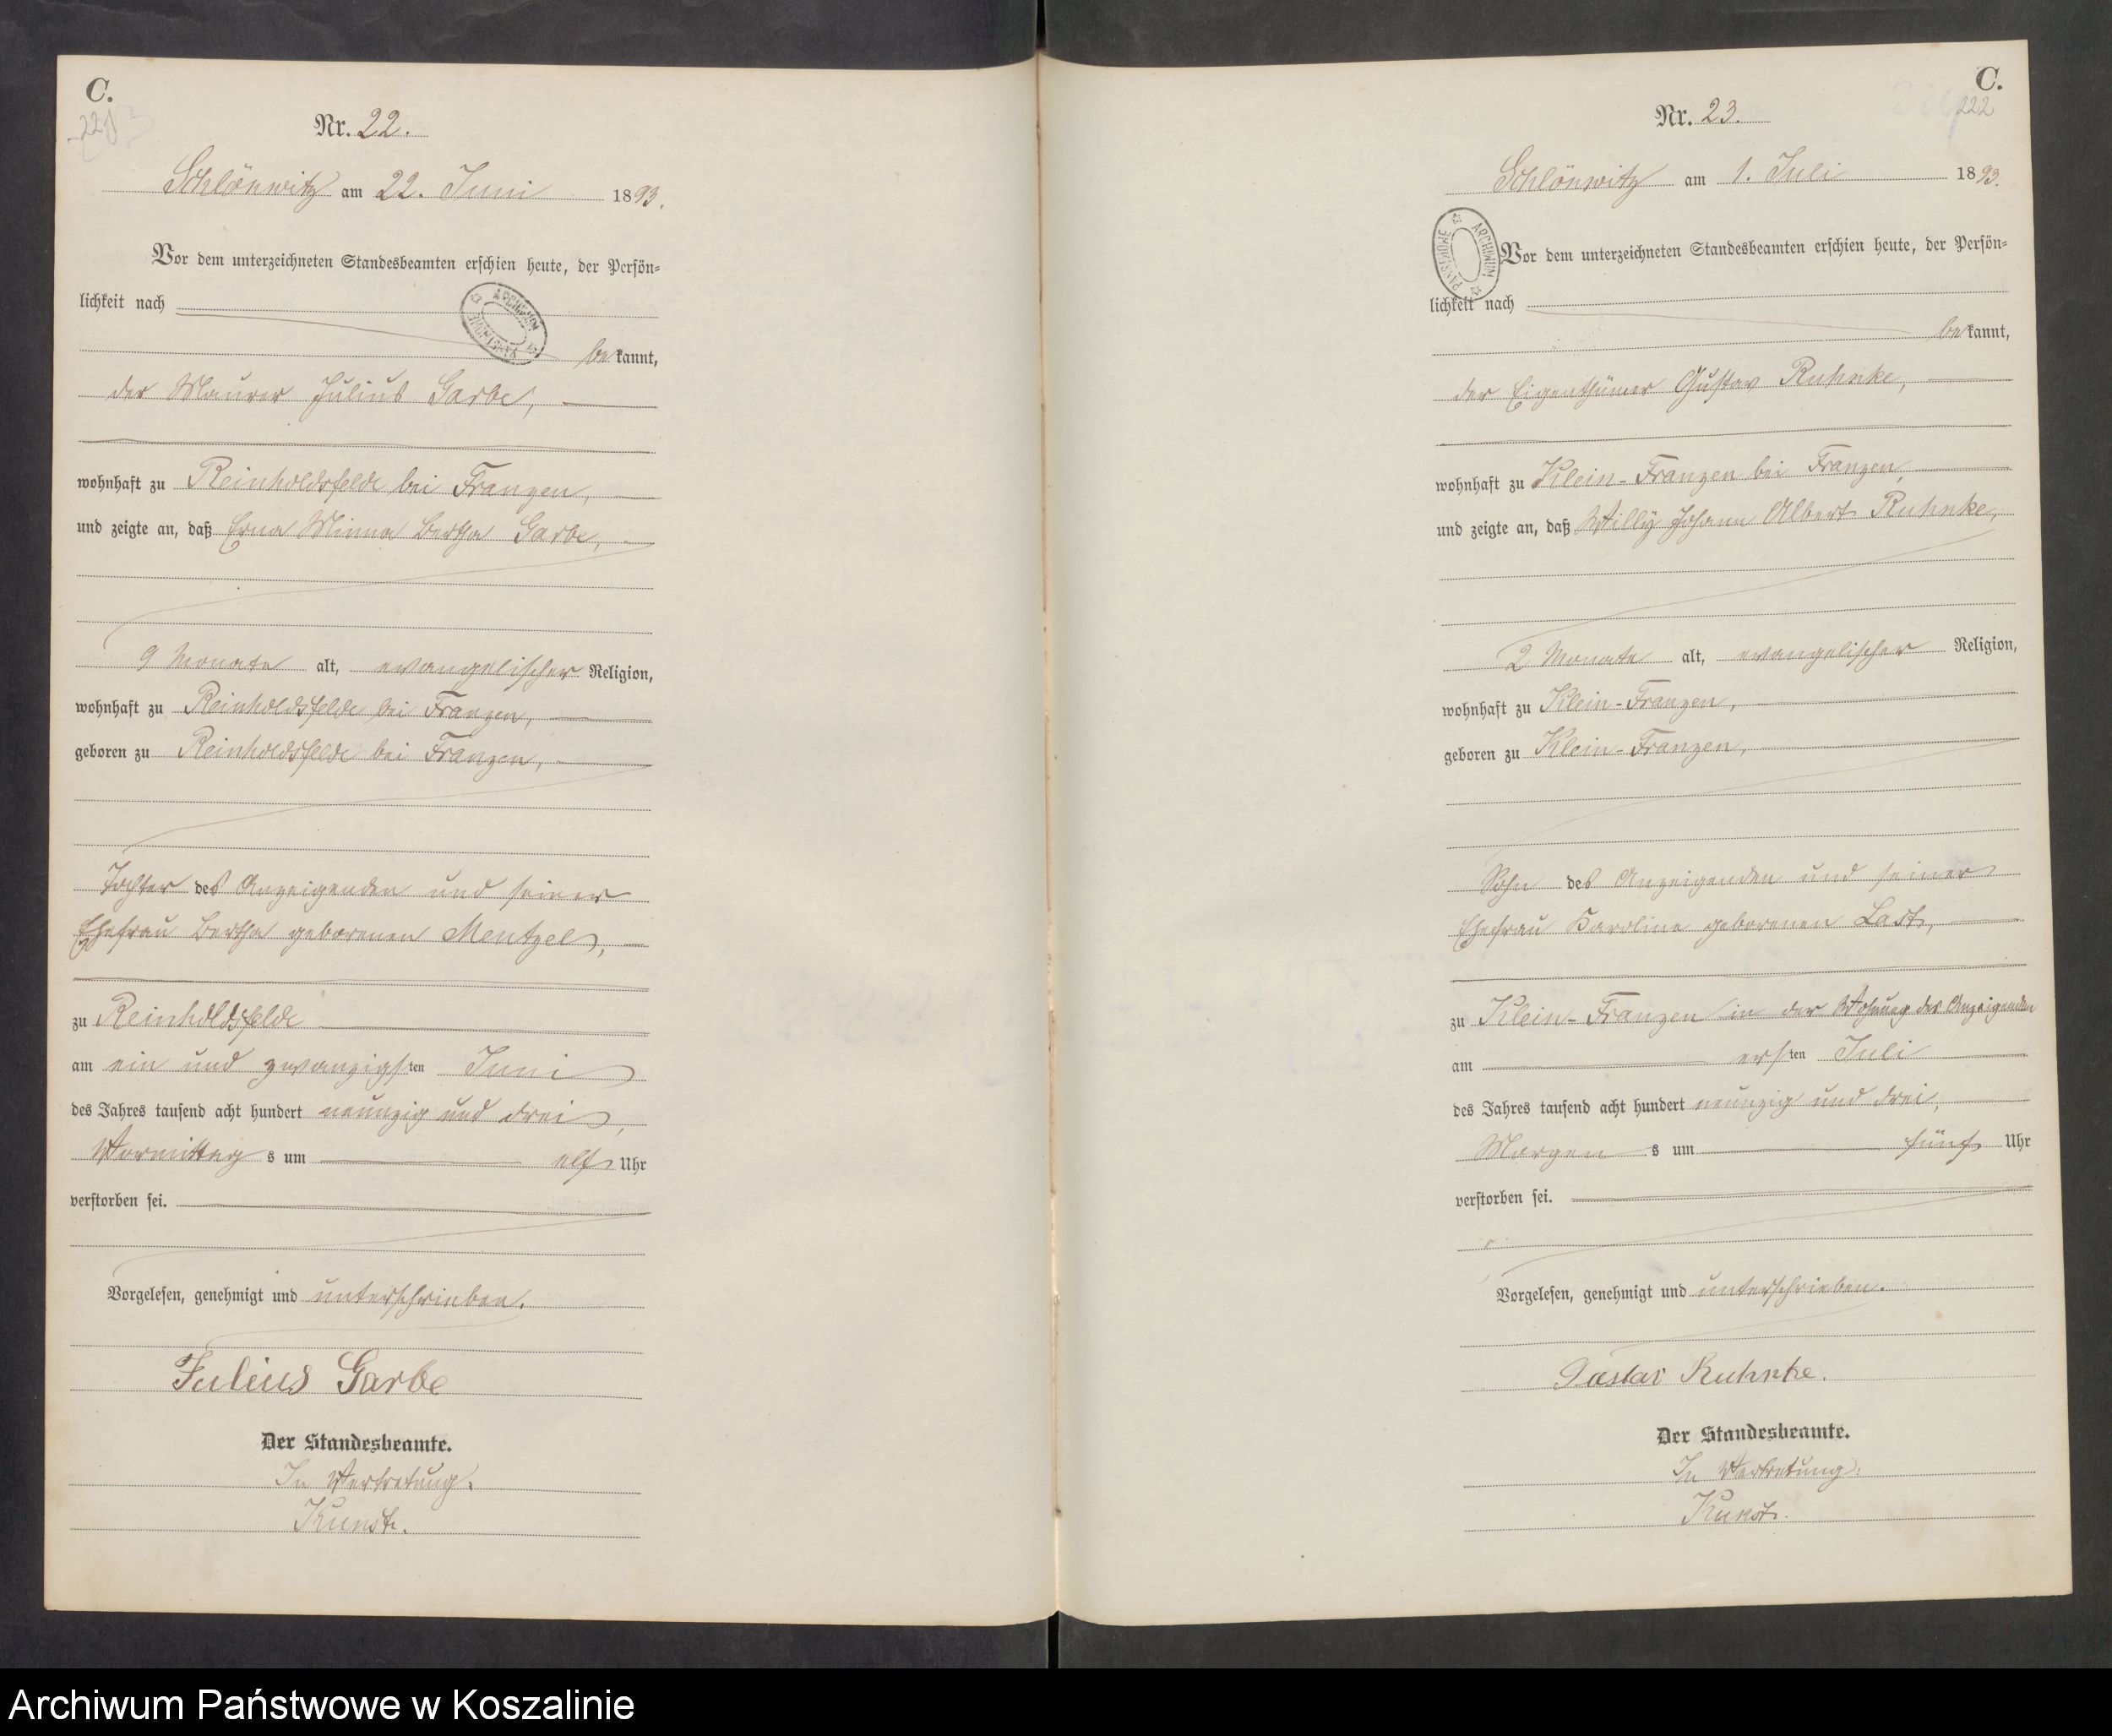 C.
221
Nr. 22.
Schlönwitz am 22. Juni 1893.
Vor dem unterzeichneten Standesbeamten erschien heute, der Persön-
lichkeit nach
ARCHIWUM PAŃSTWOWE
bekannt,
der Maurer Julius Garbe,
wohnhaft zu Reinholdsfelde bei Franzen,
und zeigte an, daß Erna Minna Bertha Garbe,
9 Monate alt, evangelischer Religion,
wohnhaft zu Reinholdsfelde bei Franzen,
geboren zu Reinholdsfelde bei Franzen,
Tochter des Anzeigenden und seiner
Ehefrau Bertha geborenen Mentzel,
zu Reinholdsfelde
am ein und zwanzigsten Juni
des Jahres tausend acht hundert neunzig und drei,
Vormittags um elf Uhr
verstorben sei.
Vorgelesen, genehmigt und unterschrieben.
Julius Garbe
Der Standesbeamte.
In Vertretung:
Kunst.
C.
222
Nr. 23.
Schlönwitz am 1. Juli 1893.
ARCHIWUM PAŃSTWOWE
Vor dem unterzeichneten Standesbeamten erschien heute, der Persön-
lichkeit nach
bekannt,
der Eigenthümer Gustav Ruhnke,
wohnhaft zu Klein-Franzen bei Franzen,
und zeigte an, daß Willy Johann Albert Ruhnke,
2 Monate alt, evangelischer Religion,
wohnhaft zu Klein-Franzen,
geboren zu Klein-Franzen,
Sohn des Anzeigenden und seiner
Ehefrau Karoline geborenen Last,
zu Klein-Franzen in der Wohnung des Anzeigenden
am ersten Juli
des Jahres tausend acht hundert neunzig und drei,
Morgens um fünf Uhr
verstorben sei.
Vorgelesen, genehmigt und unterschrieben.
Gustav Ruhnke.
Der Standesbeamte.
In Vertretung:
Kunst.
Archiwum Państwowe w Koszalinie